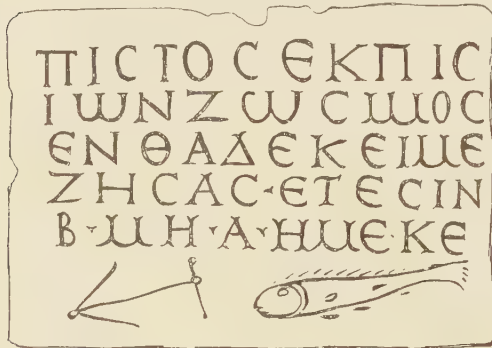 ΠΙCΤΟCΕΚΠΙC
ΙωΝΖωCΙΜΟC
ΕΝΘΑΔΕΚΕΙΜΕ
ΖΗCΑC·ΕΤΕCΙΝ
Β·ΜΗ·Α·ΗΜΕ·ΚΕ